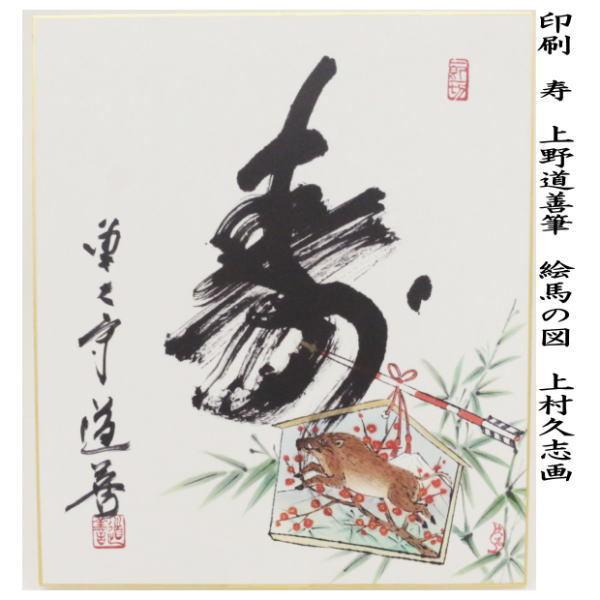 印刷 寿 上野道善筆 絵馬の図 上村久志画
寿
東大寺道善